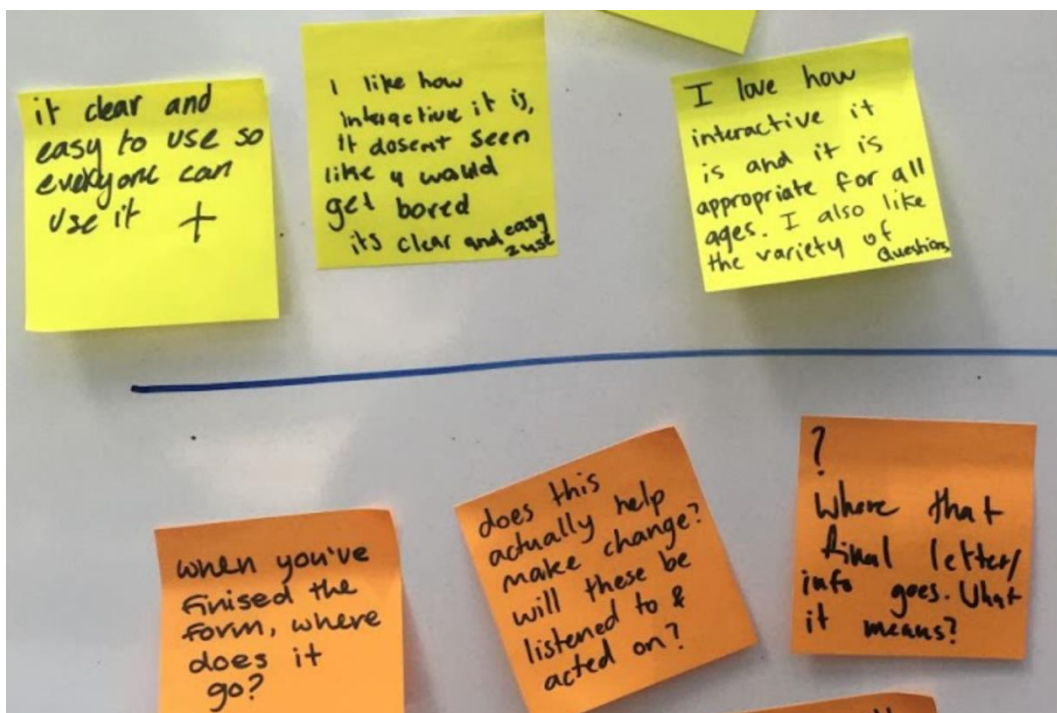 it clear and
easy to use so
everyone can
use it +
I like how
interactive it is,
It dosent seen
like u would
get bored
its clear and easy
2 use
I love how
interactive it
is and it is
appropriate for all
ages. I also like
the variety of
Questions
when you've
finised the
form, where
does it
go?
does this
actually help
make change?
will these be
listened to &
acted on?
?
Where that
final letter/
info goes. What
it means?